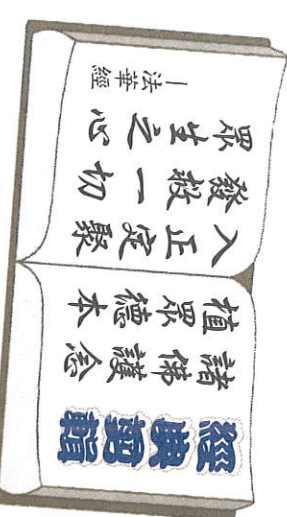 經典剪輯
諸佛護念
植眾德本
入正定聚
發救一切
眾生之心
—法華經